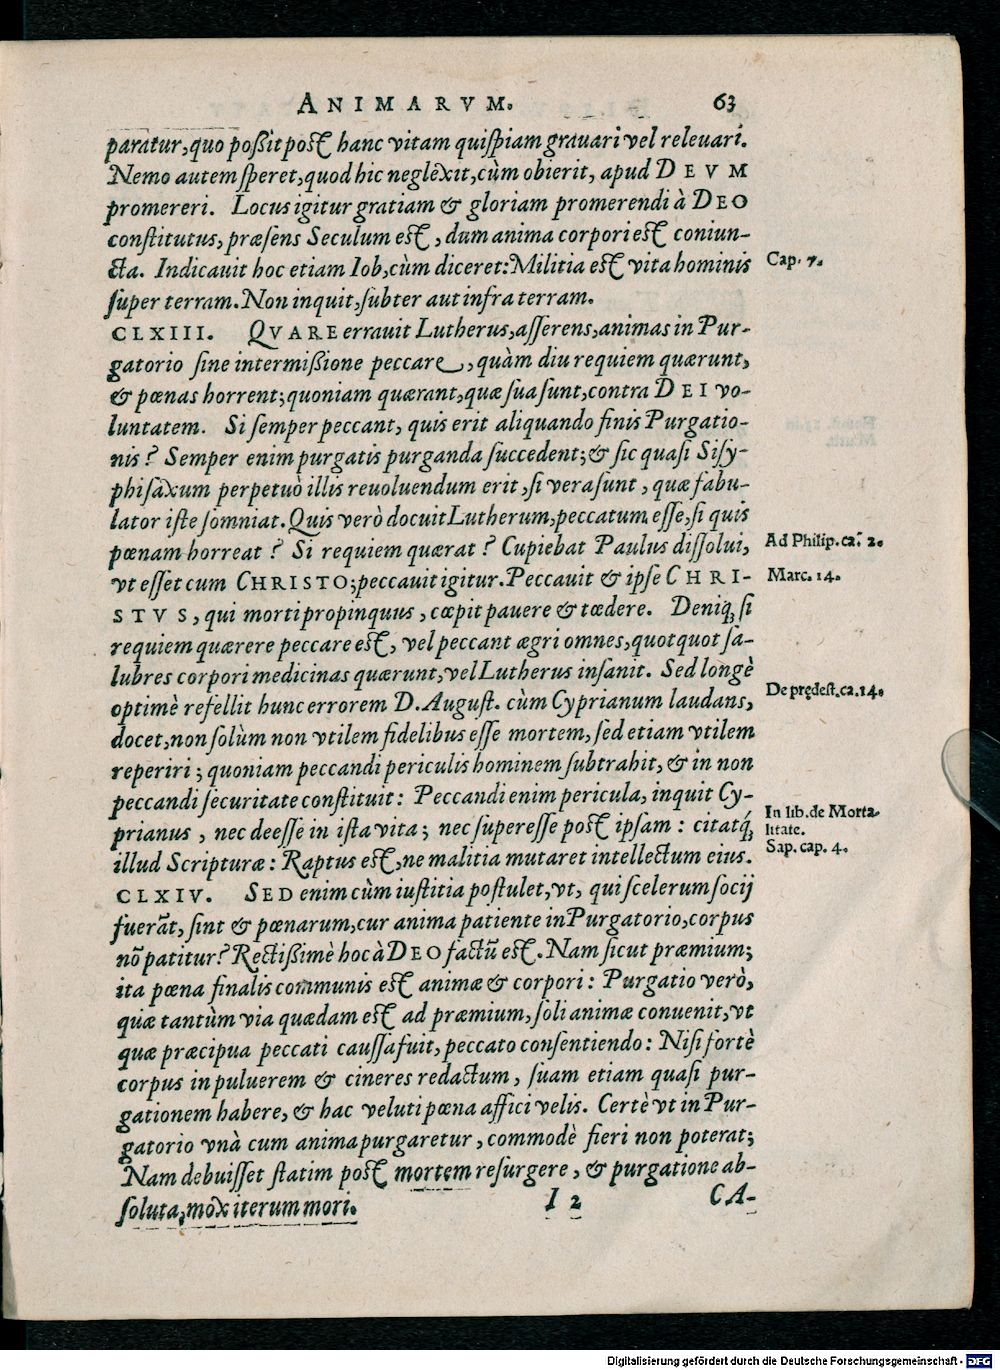 ANIMARVM. 63
paratur, quo poßit post hanc vitam quispiam grauari vel releuari.
Nemo autem speret, quod hic neglexit, cùm obierit, apud DEVM
promereri. Locus igitur gratiam & gloriam promerendi à DEO
constitutus, præsens Seculum est, dum anima corpori est coniun-
cta. Indicauit hoc etiam Iob, cùm diceret: Militia est vita hominis
super terram. Non inquit, subter aut infra terram.
Cap. 7.
CLXIII. QVARE errauit Lutherus, asserens, animas in Pur-
gatorio sine intermißione peccare, quàm diu requiem quærunt,
& pœnas horrent; quoniam quærant, quæ sua sunt, contra DEI vo-
luntatem. Si semper peccant, quis erit aliquando finis Purgatio-
nis? Semper enim purgatis purganda succedent; & sic quasi Sisy-
phi saxum perpetuò illis reuoluendum erit, si vera sunt, quæ fabu-
lator iste somniat. Quis verò docuit Lutherum, peccatum esse, si quis
pœnam horreat? Si requiem quærat? Cupiebat Paulus dissolui,
Ad Philip. ca. 2.
vt esset cum CHRISTO; peccauit igitur. Peccauit & ipse CHRI-
Marc. 14.
STVS, qui morti propinquus, cœpit pauere & tœdere. Deniq; si
requiem quærere peccare est, vel peccant ægri omnes, quotquot sa-
lubres corpori medicinas quærunt, vel Lutherus insanit. Sed longè
optimè refellit hunc errorem D. August. cùm Cyprianum laudans,
De prędest. ca. 14.
docet, non solùm non vtilem fidelibus esse mortem, sed etiam vtilem
reperiri; quoniam peccandi periculis hominem subtrahit, & in non
peccandi securitate constituit: Peccandi enim pericula, inquit Cy-
prianus, nec deesse in ista vita; nec superesse post ipsam: citatq́;
In lib. de Morta
litate.
illud Scripturæ: Raptus est, ne malitia mutaret intellectum eius.
Sap. cap. 4.
CLXIV. SED enim cùm iustitia postulet, vt, qui scelerum socij
fuerāt, sint & pœnarum, cur anima patiente in Purgatorio, corpus
nō patitur? Rectißimè hoc à DEO factū est. Nam sicut præmium;
ita pœna finalis communis est animæ & corpori: Purgatio verò,
quæ tantùm via quædam est ad præmium, soli animæ conuenit, vt
quæ præcipua peccati caussa fuit, peccato consentiendo: Nisi fortè
corpus in puluerem & cineres redactum, suam etiam quasi pur-
gationem habere, & hac veluti pœna affici velis. Certè vt in Pur-
gatorio vnà cum anima purgaretur, commodè fieri non poterat;
Nam debuisset statim post mortem resurgere, & purgatione ab-
soluta, mox iterum mori.
I 2 CA-
Digitalisierung gefördert durch die Deutsche Forschungsgemeinschaft - DFG